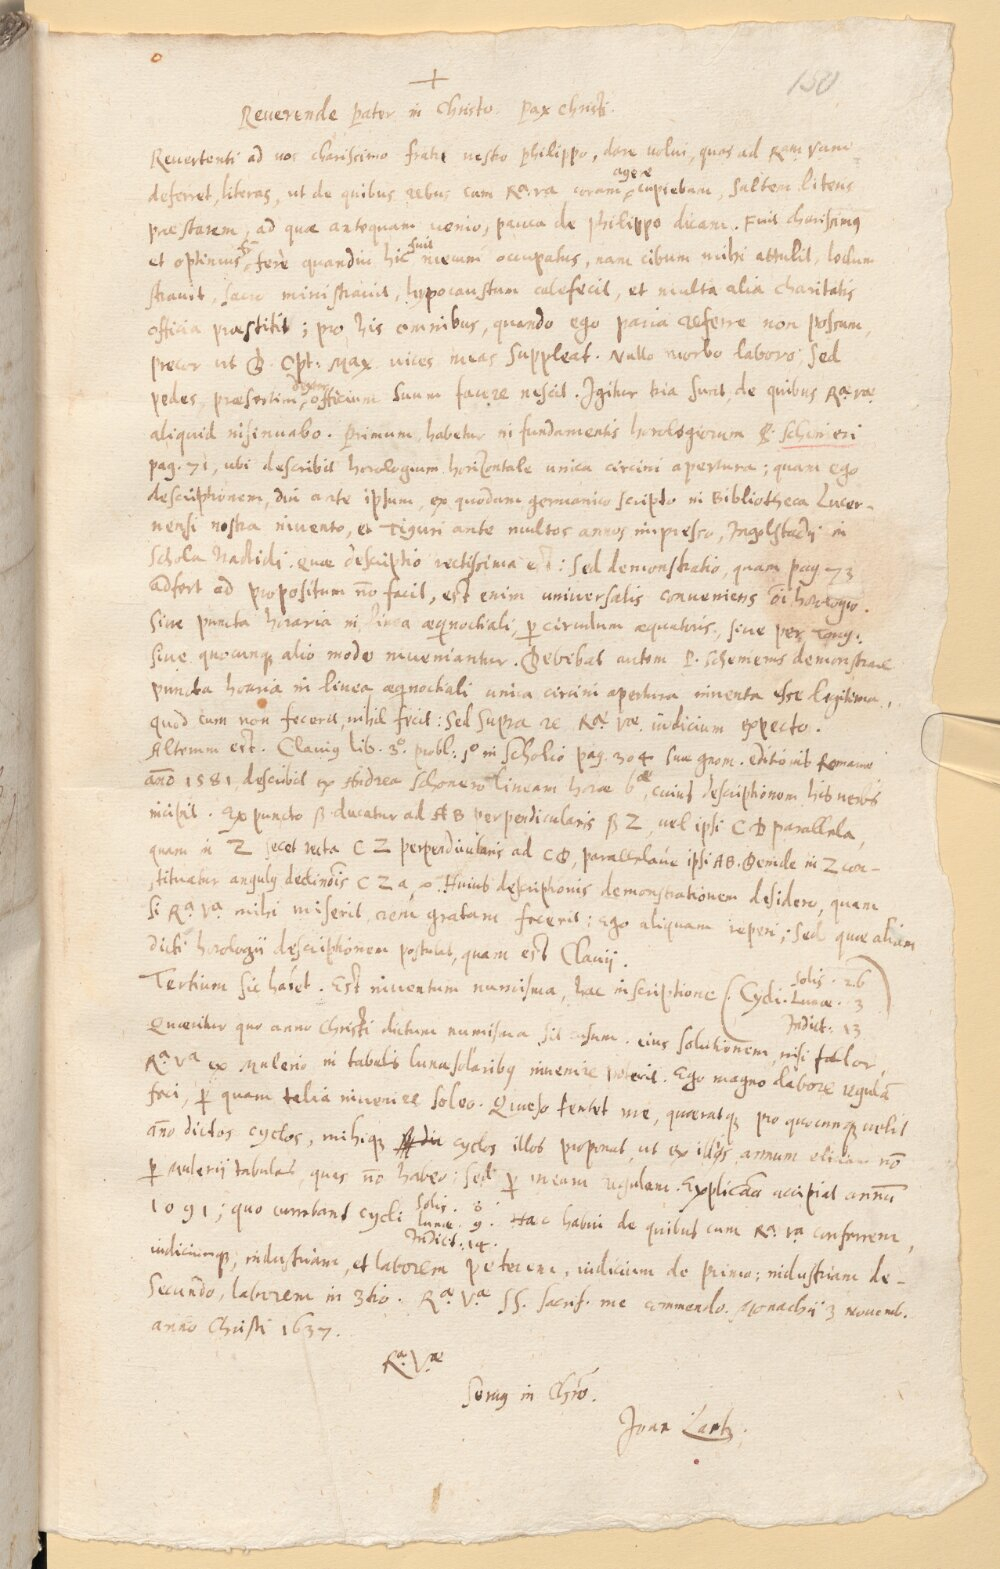 150
Reverende Pater in Christo. Pax Christi.
Revertenti ad vos charissimo fratri nostro Philippo, dare volui, quas ad Ram Vam
deferret, literas, ut de quibus rebus cum Ra. va coram agere cupiebam, saltem literis
præstarem, ad quæ antequam venio, pauca de Philippo dicam. Fuit charissimus
et optimus fr. ferè quandiu hic fuit mecum occupatus, nam cibum mihi attulit, lectum
stravit, sacro ministravit, hypocaustum calefecit, et multa alia charitatis
officia præstitit; pro his omnibus, quando ego paria referre non possum,
precor ut D. Opt. Max. vices meas suppleat. Nullo morbo laboro, sed
pedes, præsertim dexter, officium suum facere nescit. Igitur tria sunt, de quibus Ræ. væ
aliquid insinuabo. Primum, habetur in fundamentis horologiorum P. Scheineri
pag. 71, ubi describit horologium horizontale unica circini apertura; quam ego
descriptionem, diu ante ipsum, ex quodam germanico scripto in Bibliotheca Lucer-
nensi nostra invento, et Tiguri ante multos annos impresso, Ingolstadij in
schola tradidi. Quæ descriptio rectissima est: Sed demonstratio, quam pag 73
adfert ad propositum nō facit, est enim universalis conveniens oī horologio.
Sive puncta horaria in linea æqnoctiali, p circulum æquatoris, sive per Tang:
sive quocunq alio modo inveniantur. Debebat autem P. Scheinerus demonstrare
puncta horaria in linea æqnoctiali unica circini apertura inventa esse legitima,
quod cum non fecerit, nihil fecit: Sed supra re Ræ væ iudicium expecto.
Alterum est. Clavius lib. 3o. probl: 5o in scholio pag. 304 suæ gnom. editionis Romanæ
anō 1581, describit ex Andrea Schonero lineam horæ 6æ, cuius descriptionem his verbis
incipit. Ex puncto B ducatur ad AB perpendicularis BZ, vel ipsi CD parallela,
quam in Z secet recta CZ perpendicularis ad CD, parallelave ipsi AB. Deinde in Z con-
stituatur angulus declinōis CZa, &. Huius descriptionis demonstrationem desidero, quam
si Ra. Va. mihi miserit, rem gratam fecerit; Ego aliquam reperi; sed quæ aliam
dicti horologii descriptionem postulat, quam est Clavij.
Tertium sic habet. Est inventum numisma, hac inscriptione (Cycli. Solis. 26
Lunæ. 3
Indict. 13)
Quæritur quo anno Christi dictum numisma sit cusum. eius solutionem, nisi fallor,
Ra Va ex Mulerio in tabulis lunæsolaribus invenire poterit. Ego magno labore regulā
feci, p quam talia invenire soleo. Quæso tentet me, quæratq pro quocunq velit
año dictos cyclos, mihiq cyclos illos proponat, ut ex illis annum eliciam nō
p Mulerij tabulas, quas nō habeo; sed p meam regulam. Explicāa accipiat annū
1091; quo currebant cycli Solis. 8
Lunæ. 9.
Indict. 14. Hæc habui de quibus cum Ra. va conferrem,
iudiciumq, industriam, et laborem peterem, iudicium de primo; industriam de-
Secundo, laborem in 3tio. Ræ. Væ SS. sacrif. me commendo. Monachij 3 Novemb.
anno Christi 1637.
Ræ. Væ
Servus in Chrō.
Joan Lantz.